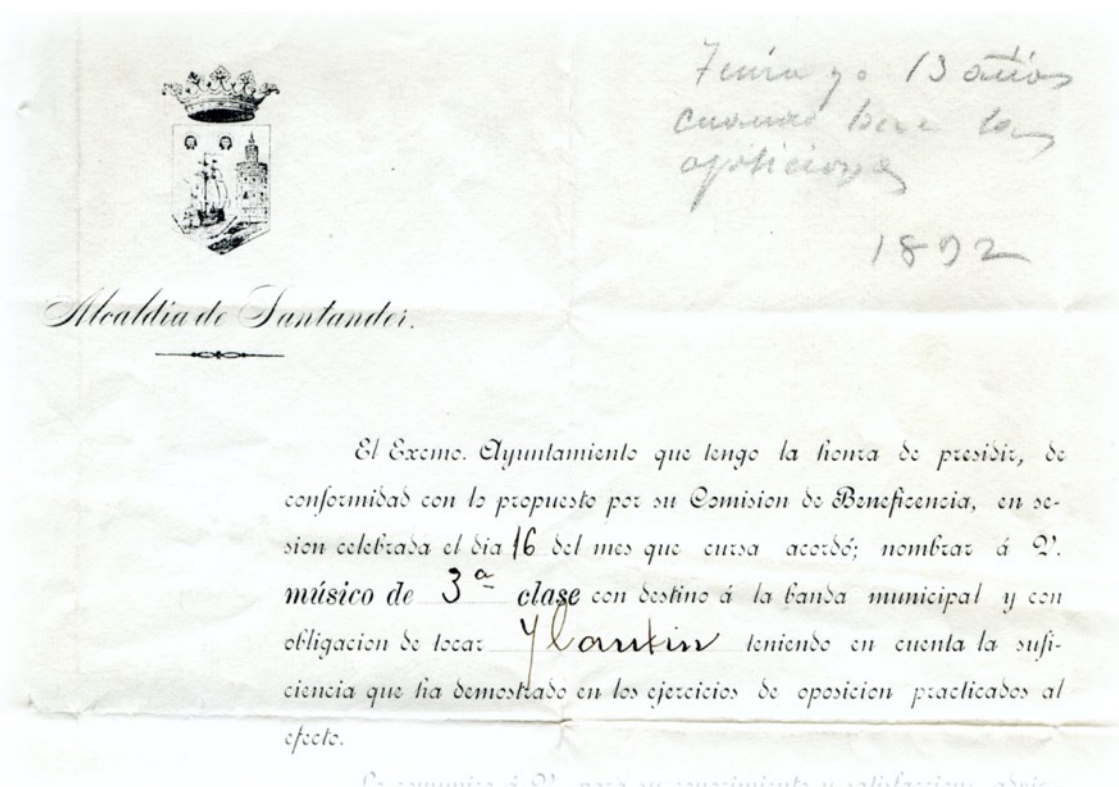 Tenia yo 13 años
cuando hice las
oposiciones
1892
Alcaldía de Santander.
El Excmo. Ayuntamiento que tengo la honra de presidir, de
conformidad con lo propuesto por su Comision de Beneficencia, en se-
sion celebrada el dia 16 del mes que cursa acordó; nombrar á V.
músico de 3ª clase con destino á la banda municipal y con
obligacion de tocar teniendo en cuenta la sufi-
ciencia que ha demostrado en los ejercicios de oposicion practicados al
efecto.
Lo comunico á V. para su conocimiento y satisfaccion;